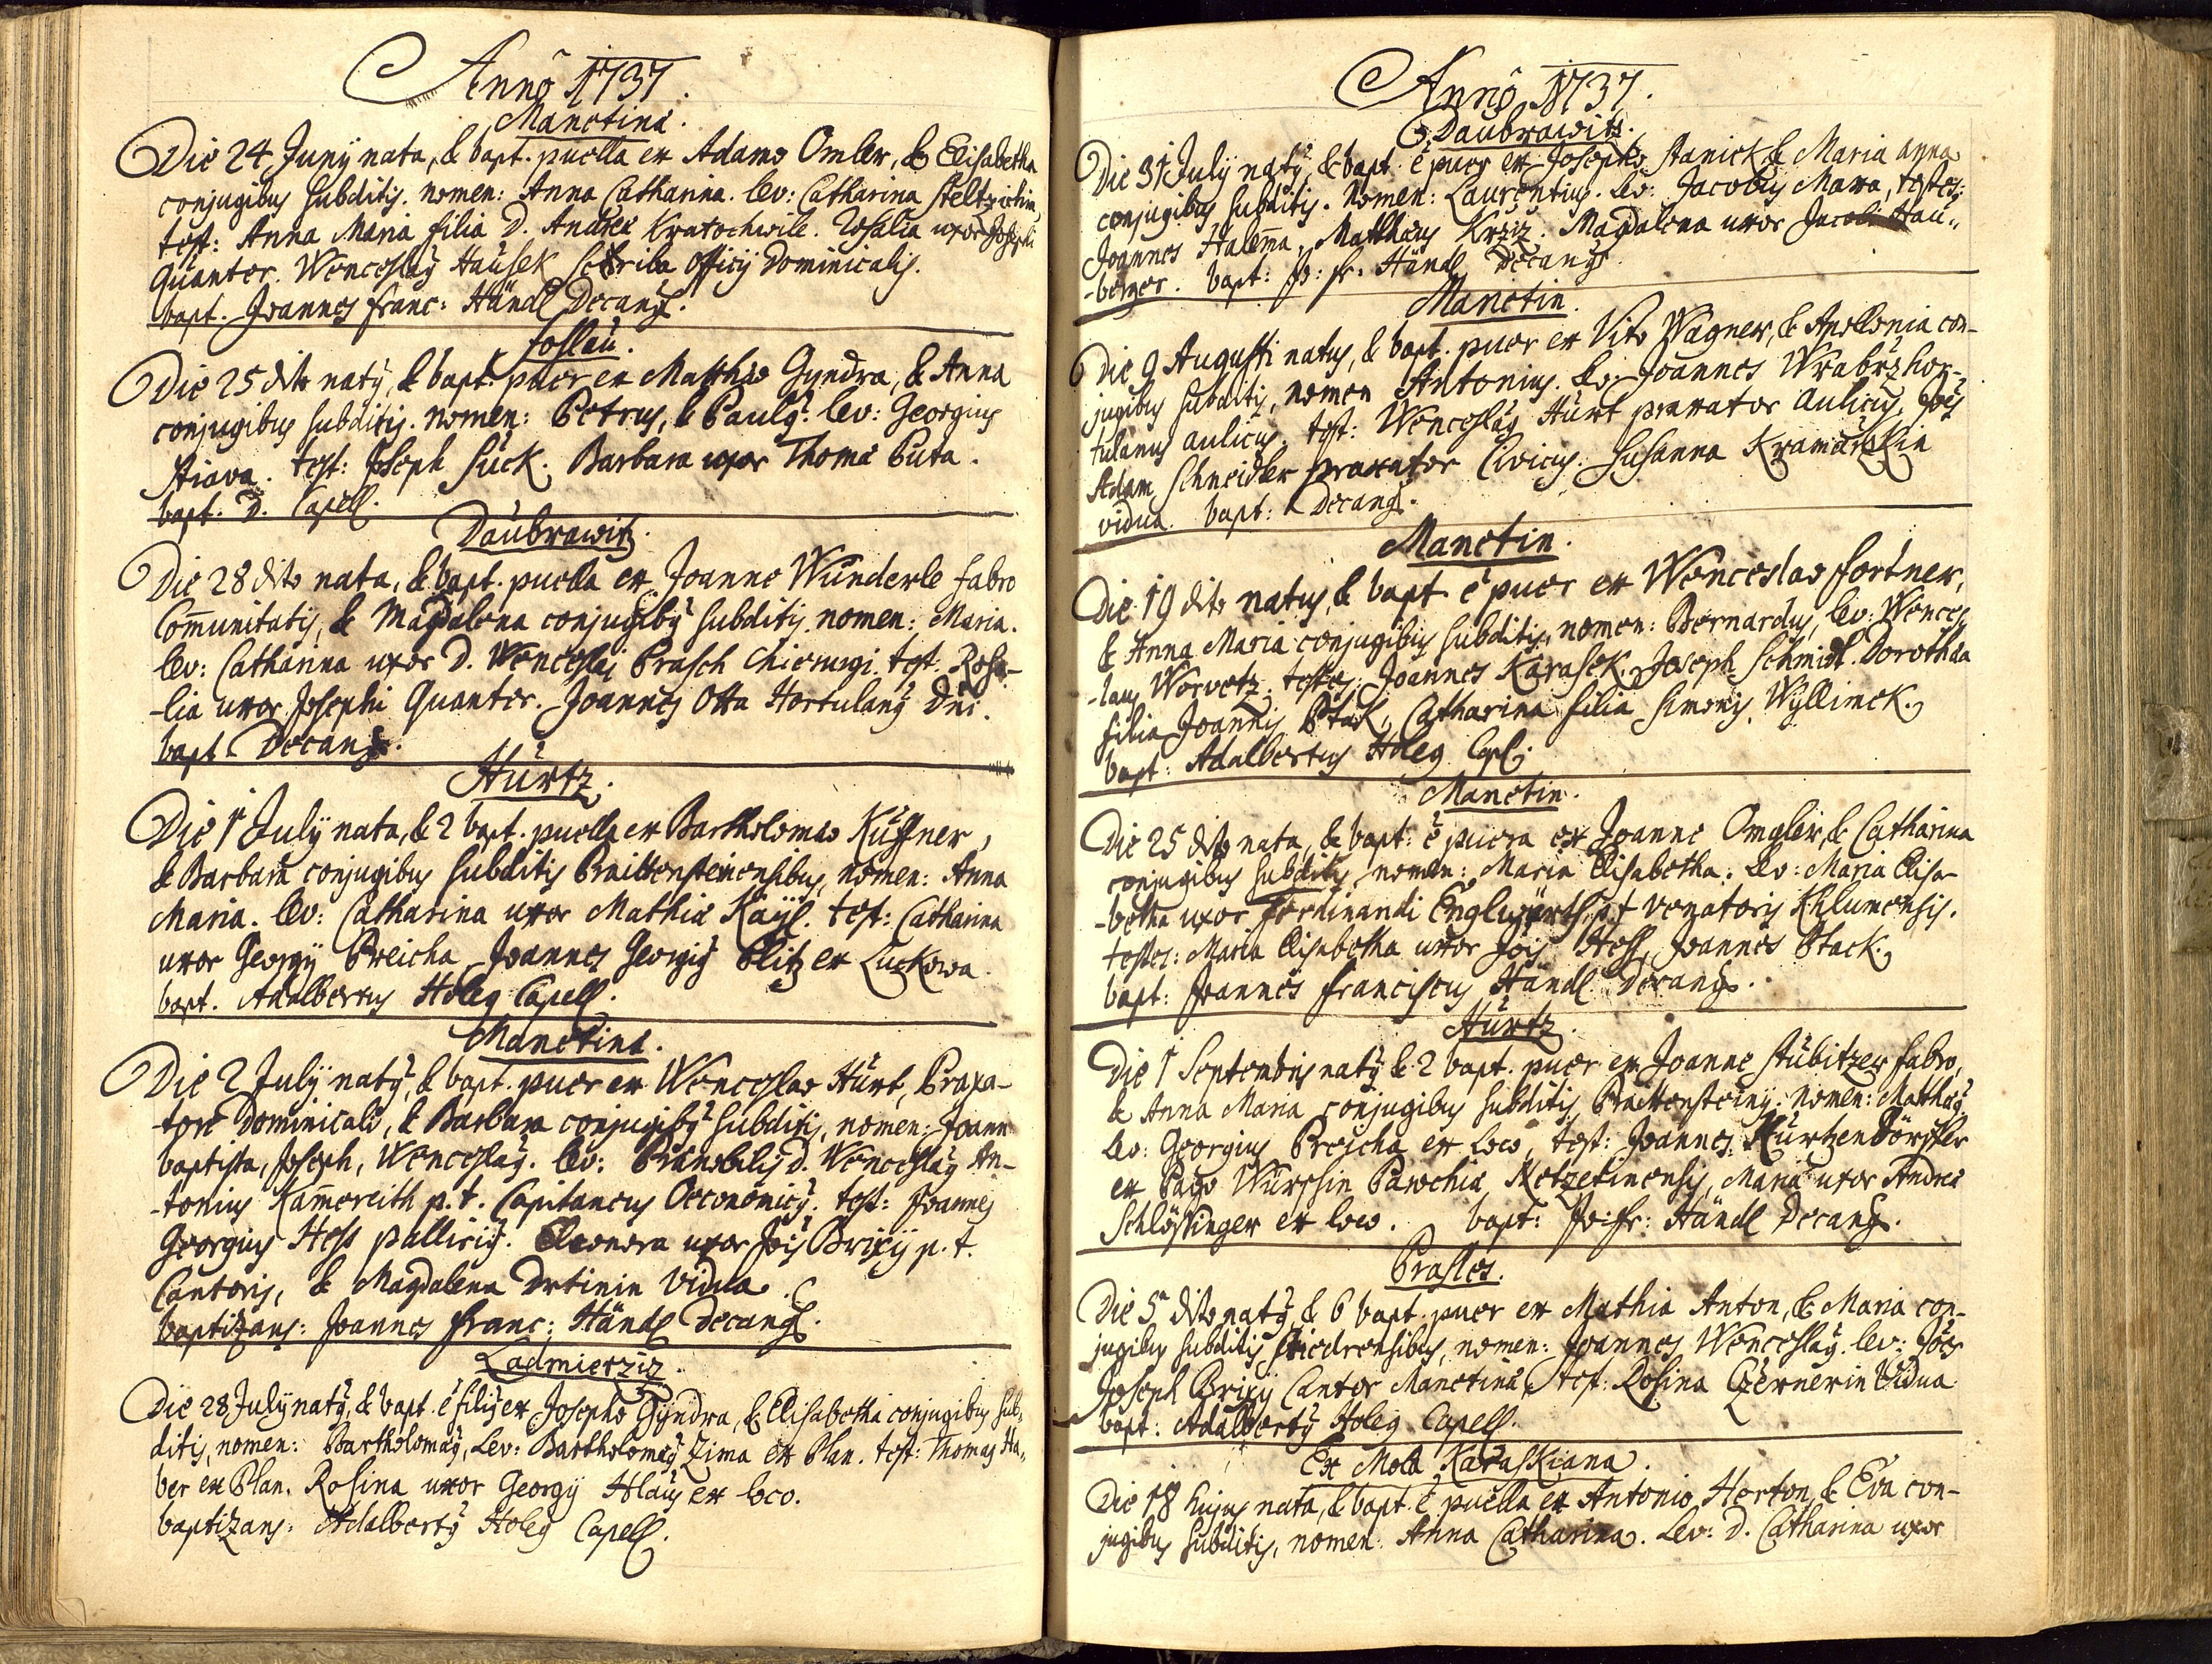 Annô 1737.
Manetinâ.
Die 24 Junÿ nata, & bapt. puella ex Adamo Omler, & Elisabetha
conjugibus subditis. nomen: Anna Catharina. lev: Catharina Steltzichin,
test: Anna Maria filia D. Andreæ Kratochwile. Rosalia uxor Josephi
Quanter. Wenceslaus Hausek Scriba officij Dominicalis.
bapt. Joannes Franc: Händl Decanus.
Coslau.
Die 25 dito natus, & bapt. puer ex Matthæo Gÿndra, & Anna
conjugibus subditis. nomen: Petrus, & Paulus. lev: Georgius
Stiava. test: Joseph Suck. Barbara uxor Thomæ Puta.
bapt. D. Capell.
Daubrawitz.
Die 28 dito nata, & bapt. puella ex Joanne Wunderle fabro
Com̄unitatis, & Magdalena conjugibus subditis, nomen: Maria.
lev: Catharina uxor D. Wenceslai Prasch Chirurgi. test. Rosa-
-lia uxor Josephi Quanter. Joannes Otta Hortulanus Dni.
bapt. Decanus.
Hurtz.
Die 1 Julÿ nata, & 2 bapt. puella ex Bartholomæo Kuffner,
& Barbara conjugibus subditis Breittensteinensibus, nomen: Anna
Maria. lev: Catharina uxor Mathiæ Käÿl. test: Catharina
uxor Georgÿ Breicha Joannes Georgius Plitz ex Luckowa.
bapt. Adalbertus Holeg Capell.
Manetinâ.
Die 2 Julÿ natus, & bapt. puer ex Wenceslao Hurt, Braxa-
-tore Dominicali, & Barbara conjugibus subditis, nomen: Joann
baptista, Joseph, Wenceslaus. lev: Prænobilis d. Wenceslaus An-
-tonius Kam̄ereith p.t. Capitaneus Oeconomicus. test: Joannes
Georgius Hess pallicius. Eleonora uxor Jois Brixij p.t.
Cantoris, & Magdalena Drtinin vidua.
baptizans: Joannes Franc: Händl Decanus.
Ladmierziz.
Die 28 Julÿ natus, & bapt. ē filius ex Josepho Gÿndra, & Elisabetha conjugibus sub„
ditis, nomen: Bartholomæus, Lev: Bartholomæus Zima ex Plan. test: Thomas Ha„
ber ex Plan. Rosina uxor Georgÿ Hlaus ex loco.
baptizans: Adalbertus Holeg Capell.
Annô 1737.
Daubrawitz.
Die 31 Julÿ natus, & bapt. ē puer ex Josepho Stanick & Maria Anna
conjugibus subditis. Nomen: Laurentius. lev: Jacobus Mara, testes:
Joannes Halem̄a, Matthæus Krziz. Magdalena uxor Jacobi Hau„
-berger. bapt: Jo: Fr. Händl Decanus.
Manetin.
Die 9 Augusti natus, & bapt. puer ex Vito Wagner, & Apollonia con-
jugibus subditis, nomen Antonius. lev. Joannes Wrabrz hor-
tulanus aulicus. test: Wenceslaus Hurt praxator aulicus. Jois
Adam Schneidler praxator Civicus. Susanna Kramarzkin
vidua. bapt: Decanus.
Manetin.
Die 19 dito natus, & bapt ē puer ex Wenceslao Fortner,
& Anna Maria conjugibus subditis, nomen: Bernardus, lev: Wences
-laus Worvetz. testes: Joannes Karasek. Joseph Schmidt. Dorothæa
filia Joannis Ptack, Catharina filia Simonis Wÿllimek.
bapt: Adalbertus Holeg Capl.
Manetin.
Die 25 dito nata, & bapt: ē puera ex Joanne Omgler, & Catharina
conjugibus subditis, nomen: Maria Elisabetha. Lev: Maria Elisa-
-betha uxor Ferdinandi Englwürth, p.t venatoris Khlumensis.
testes: Maria Elisabetha uxor Jois Hess, Joannes Ptack.
bapt: Joannes Franciscus Händl Decanus.
Hurtz.
Die 1 Septembris natus & 2 bapt. puer ex Joanne Stubitzer fabro,
& Anna Maria conjugibus subditis Breittensteinÿ. Nomen: Matthæus
lev: Georgius Breicha ex loco, test: Joannes Kurtzendörffler
ex Pago Wurschin Parochiæ Netzetinensis, Maria uxor Andreæ
Schlössinger ex loco. bapt: Jo: Fr: Händl Decanus.
Prasles.
Die 5 dito natus, & 6 bapt. puer ex Mathia Anton, & Maria con-
jugibus subditis Stiedrensibus, nomen: Joannes Wenceslaus. lev: Joes
Joseph Brixÿ Cantor Manetinæ, test: Rosina Czernerin Vidua
bapt: Adalbertus Holeg Capell.
Ex Mola Karaskiana.
Die 18 hujus nata, & bapt. ē puella ex Antonio Horton, & Eva con-
jugibus subditis, nomen: Anna Catharina. Lev: D. Catharina uxor